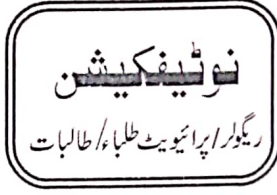 نوٹیفکیشن
ریگولر/پرائیویٹ طلباء/طالبات